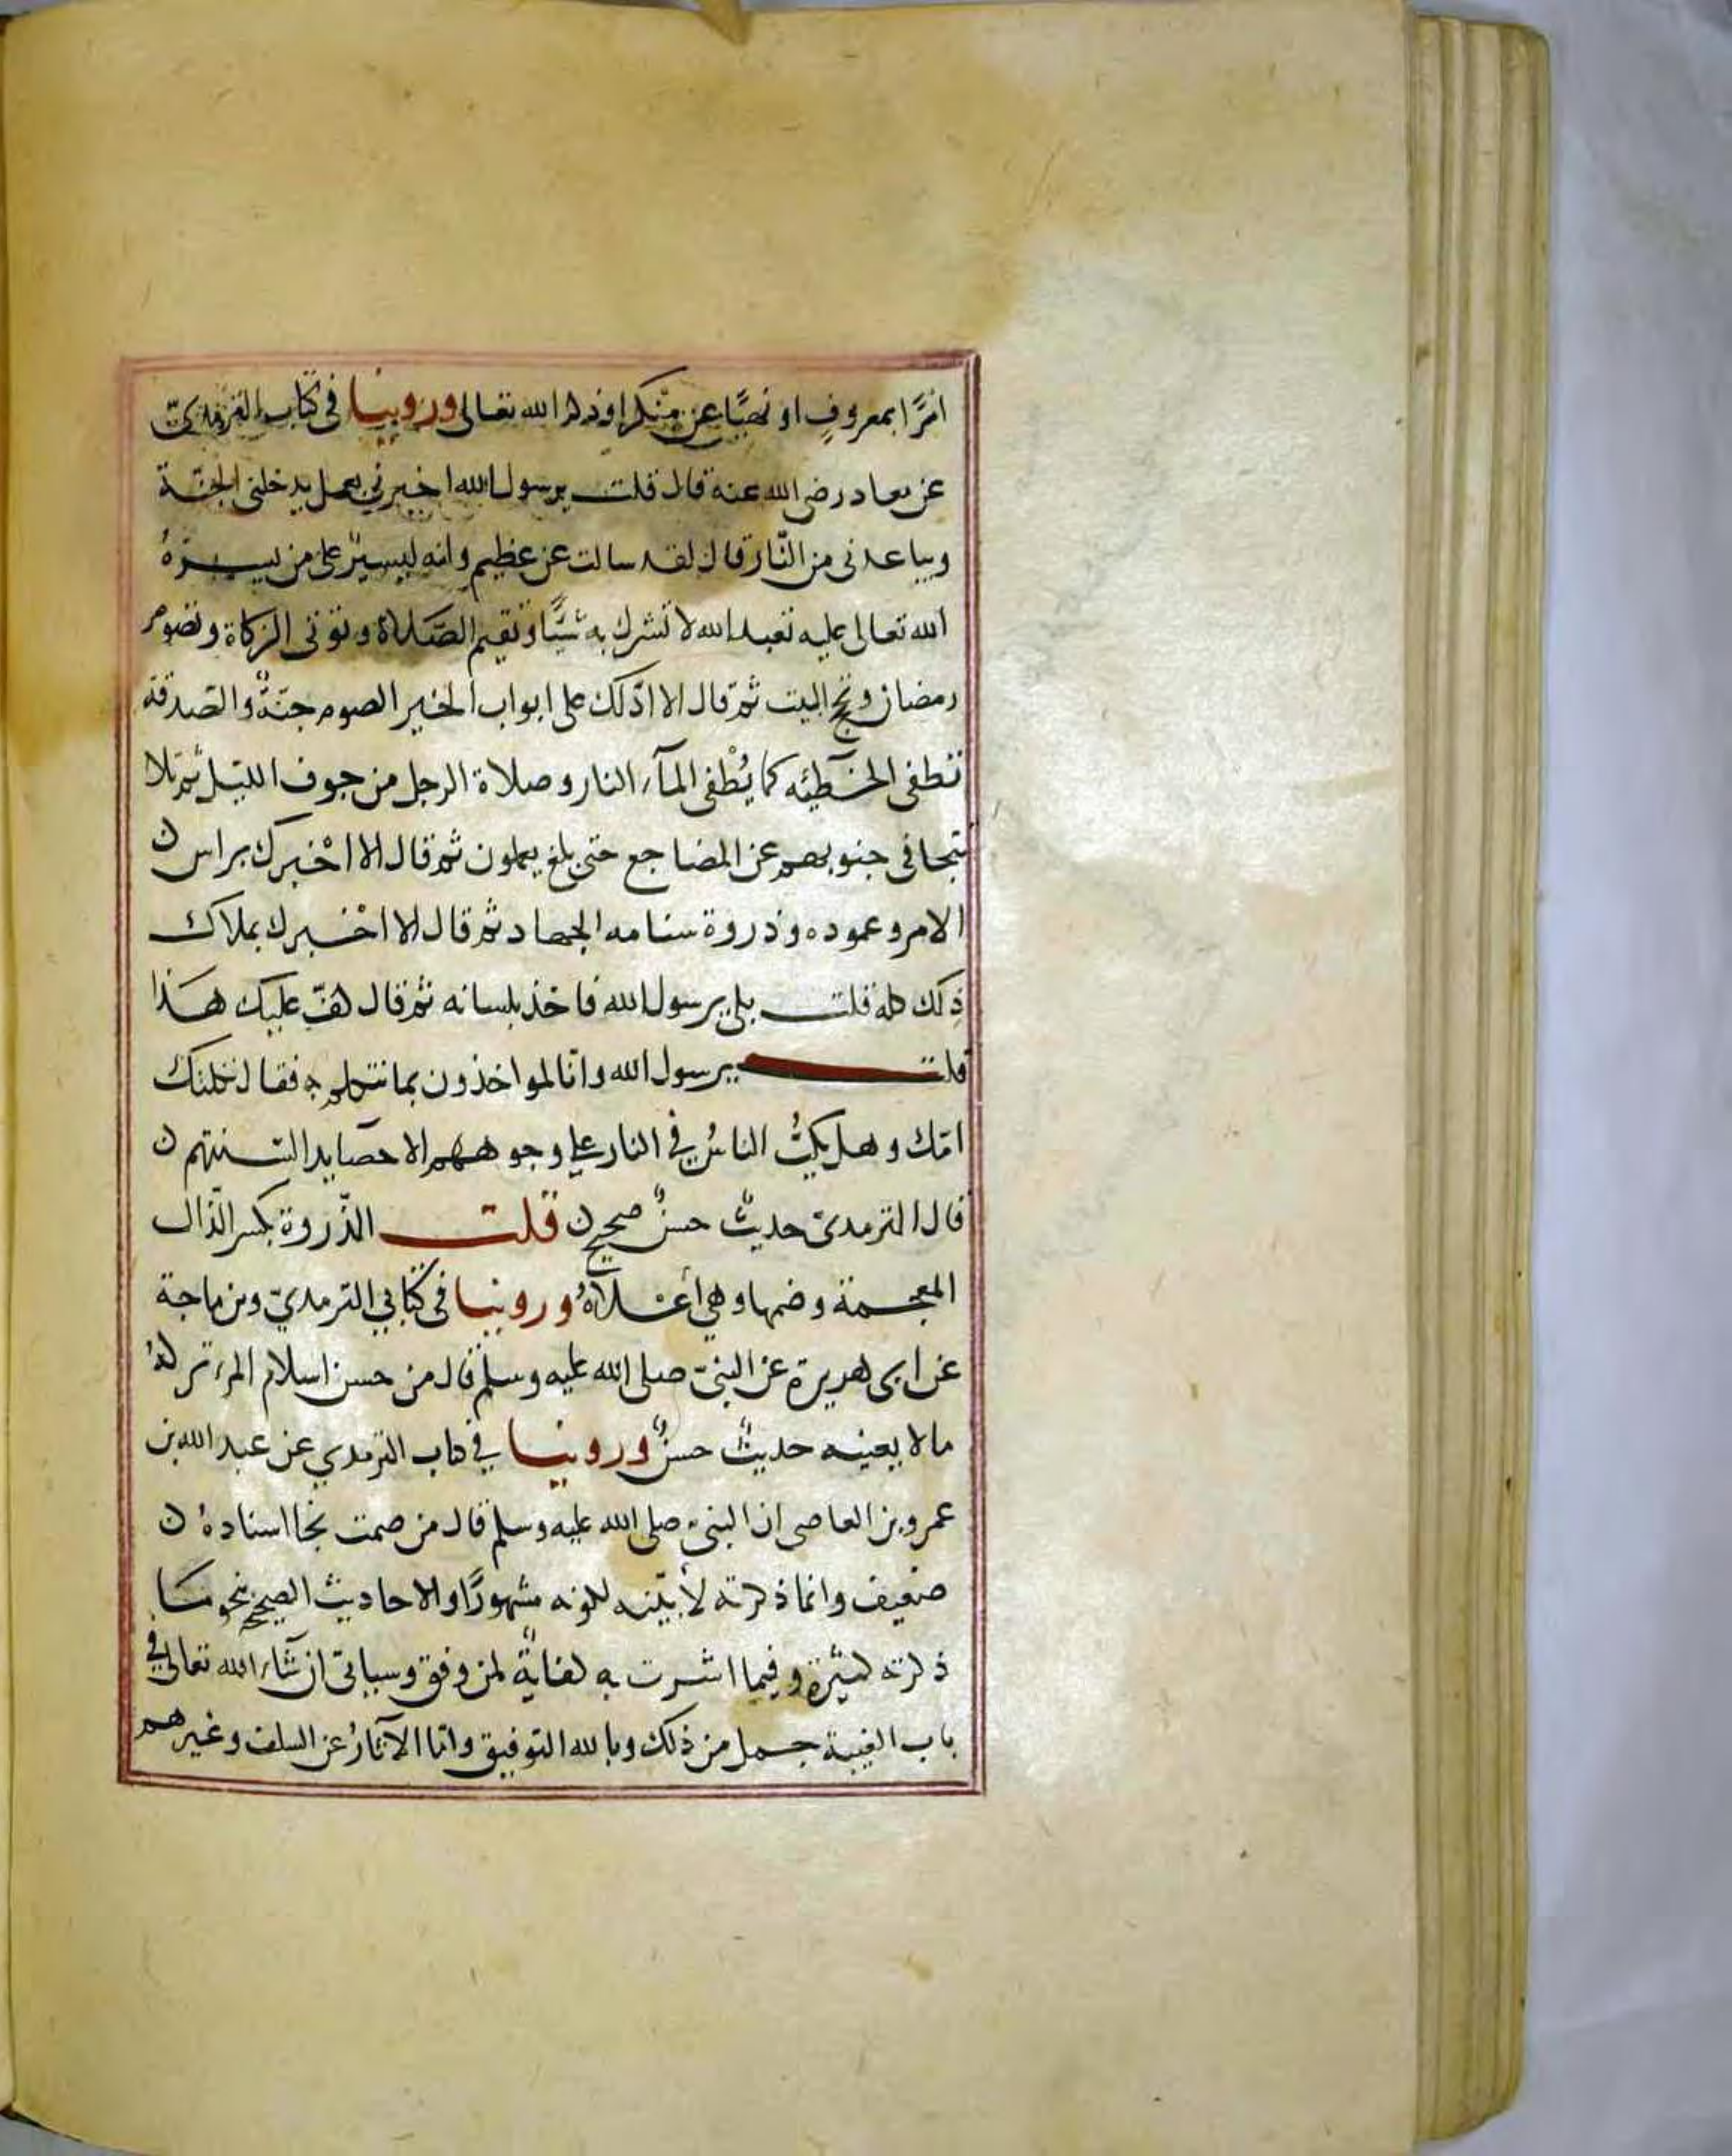 امرًا بمعروفٍ او نهيًا عن منكر اوذكر الله تعالى وروينا في كتاب الترمذيّ
عن معاذ رضي الله عنه قال قلت يرسول الله اخبرني بعمل يدخلني الجنّة
ويباعدني من النّار قال لقد سالت عن عظيم وانه ليسيرٌ على من يسرهُ
الله تعالى عليه تعبد الله لا تشرك به شيًّا وتقيم الصّلاة وتوتي الزكاة وتصوم
رمضان وتحج البيت ثم قال الا ادّلك على ابواب الخير الصوم جنّةٌ والصّدقه
تطفي الخطئه كما يُطْفي المآء النار وصلاة الرجل من جوف الليّل ثم تلا
تتجافى جنوبهم عن المضاجع حتى بلغ يعملون ثم قال الا اخْبرك براس ن
الامر وعموده وذروة سنامه الجهاد ثم قال الا اخْبرك بملاك
ذِلك كله قلت بلى يرسول الله فاخذ بلسانه ثم قال كفّ عليك هَذا
قلت يرسول الله وانّا لمواخذون بما نتكلم به فقال ثكلتك
امّك وهل يكبُّ الناسُ في النار على وجوههم الا حصايد السنتهم ن
قال الترمديّ حديثٌ حسنٌ صحيح ن قلت الذّروة بكسر الذّال
المعجمة وضمها وهي أعْلاهُ وروينا في كتابي الترمديّ وبن ماجة
عن ابي هريرة عن النبيّ صلى الله عليه وسلم قال من حسن اسلام المرء تركهُ
مالا يعينه حديثٌ حسنٌ وروينا في كتاب الترمدي عن عبد الله بن
عمرو بن العاصي ان النبيّ صلى الله عليه وسلم قال من صمت نجا اسنادهُ ن
ضعيف وانما ذكرته لأبيّنه لكونه مشهورًا والاحاديث الصحيح بنحو ما
ذكرته كثيرة وفيما اشرت به كفايةٌ لمن وفق وسياتيّ ان شآء الله تعالى في
باب الغيبة جمل من ذلك وبالله التوفيق وامّا الآثارُ عن السلف وغيرهم